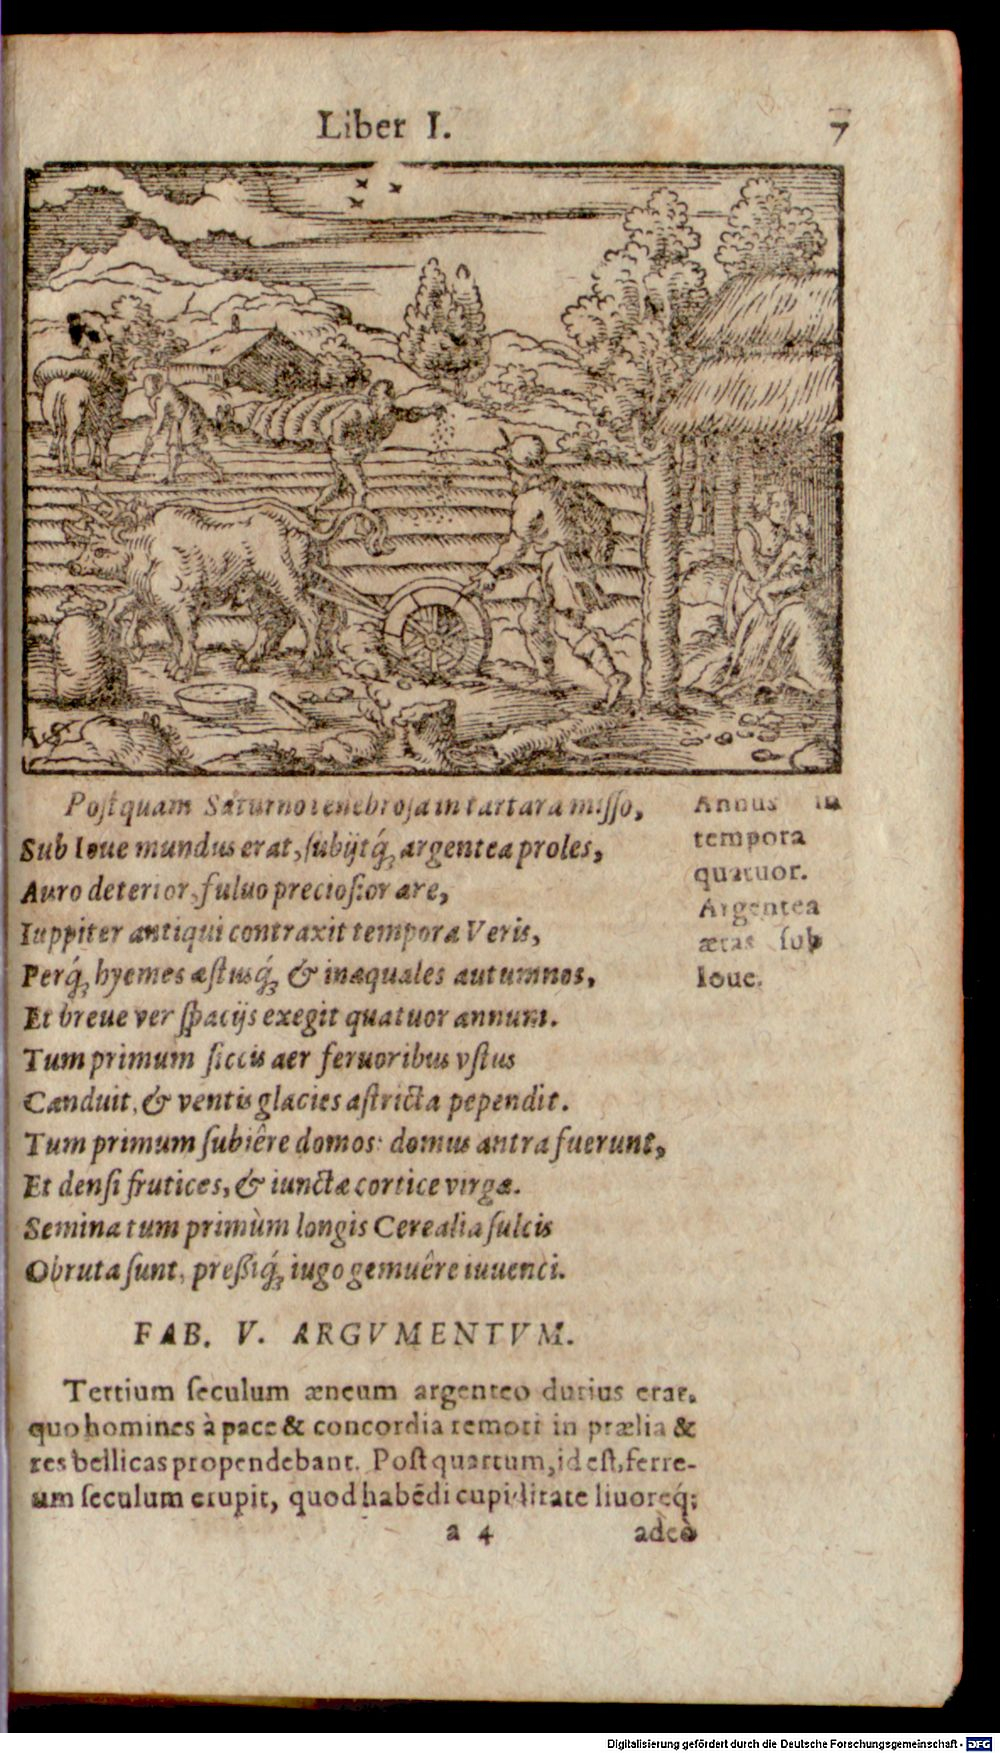 Liber I.
7
Postquam Saturno tenebrosa in tartara misso,
Sub Ioue mundus erat, subijtq́; argentea proles,
Auro deterior, fuluo preciosior ære,
Iuppiter antiqui contraxit tempora Veris,
Perq́; hyemes æstusq́; & inæquales autumnos,
Et breue ver spacijs exegit quatuor annum.
Tum primum siccis aer feruoribus vstus
Canduit, & ventis glacies astricta pependit.
Tum primum subiêre domos: domus antra fuerunt,
Et densi frutices, & iunctæ cortice virgæ.
Semina tum primùm longis Cerealia sulcis
Obruta sunt, preßiq́; iugo gemuêre iuuenci.
Annus in
tempora
quatuor.
Argentea
ætas sub
Ioue.
FAB. V. ARGVMENTVM.
Tertium seculum æneum argenteo durius erat,
quo homines à pace & concordia remoti in prælia &
res bellicas propendebant. Post quartum, id est, ferre-
um seculum erupit, quod habēdi cupiditate liuoreq́;
a 4
adeò
Digitalisierung gefördert durch die Deutsche Forschungsgemeinschaft - DFG